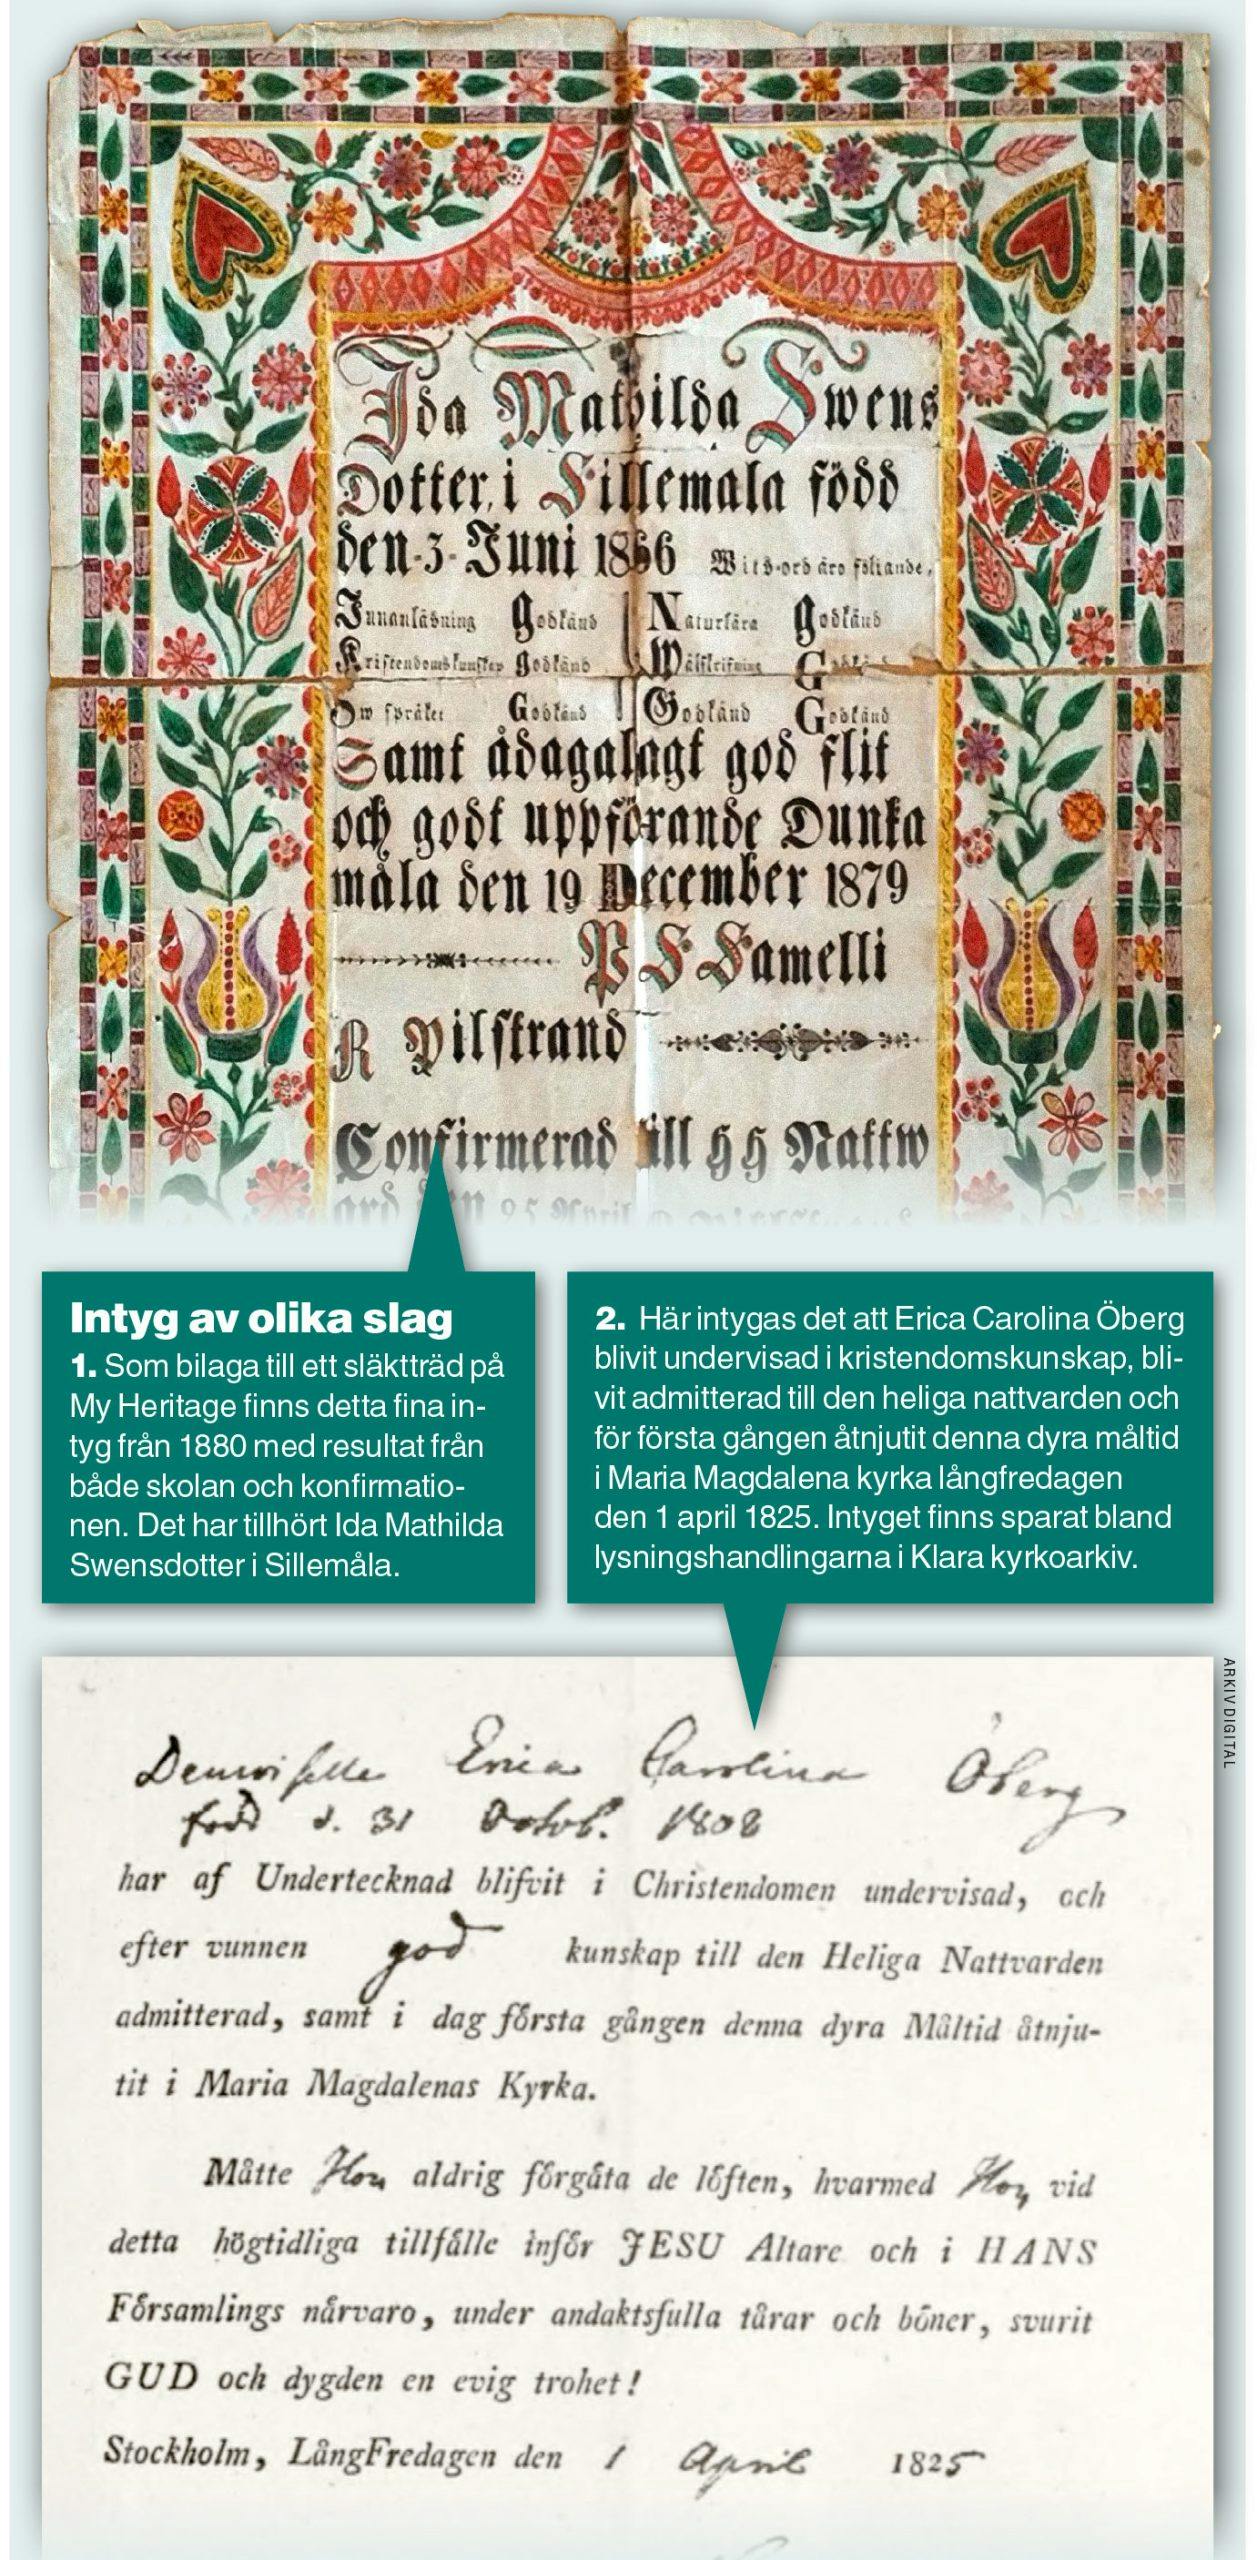 Ida Mathilda Swens
Dotter, i Sillemåla född
den-3-Juni 1866 Wits-ord äro följande,
Innanläsning Godkänd Naturlära godkänd
Kristendomskunskap godkänd Wälskrifning Godkänd
Ow språket Godkänd Godkänd Godkänd
Samt ådagalagt god flit
och godt uppförande Dunka
måla den 19 December 1879
P S Samelli
R Pilstrand
Confirmerad till H H Nattw
ard den 25 April
Intyg av olika slag
1. Som bilaga till ett släktträd på
My Heritage finns detta fina in-
tyg från 1880 med resultat från
både skolan och konfirmatio-
nen. Det har tillhört Ida Mathilda
Swensdotter i Sillemåla.
2. Här intygas det att Erica Carolina Öberg
blivit undervisad i kristendomskunskap, bli-
vit admitterad till den heliga nattvarden och
för första gången åtnjutit denna dyra måltid
i Maria Magdalena kyrka långfredagen
den 1 april 1825. Intyget finns sparat bland
lysningshandlingarna i Klara kyrkoarkiv.
ARKIV DIGITAL
Demoiselle Erica Carolina Öberg
född d. 31 Octob. 1808
har af Undertecknad blifvit i Christendomen undervisad, och
efter vunnen god kunskap till den Heliga Nattvarden
admitterad, samt i dag första gången denna dyra Måltid åtnju-
tit i Maria Magdalenas Kyrka.
Måtte Hon aldrig förgäta de löften, hvarmed Hon vid
detta högtidliga tillfälle inför JESU Altare och i HANS
Församlings närvaro, under andaktsfulla tårar och böner, svurit
GUD och dygden en evig trohet!
Stockholm, LångFredagen den 1 April 1825